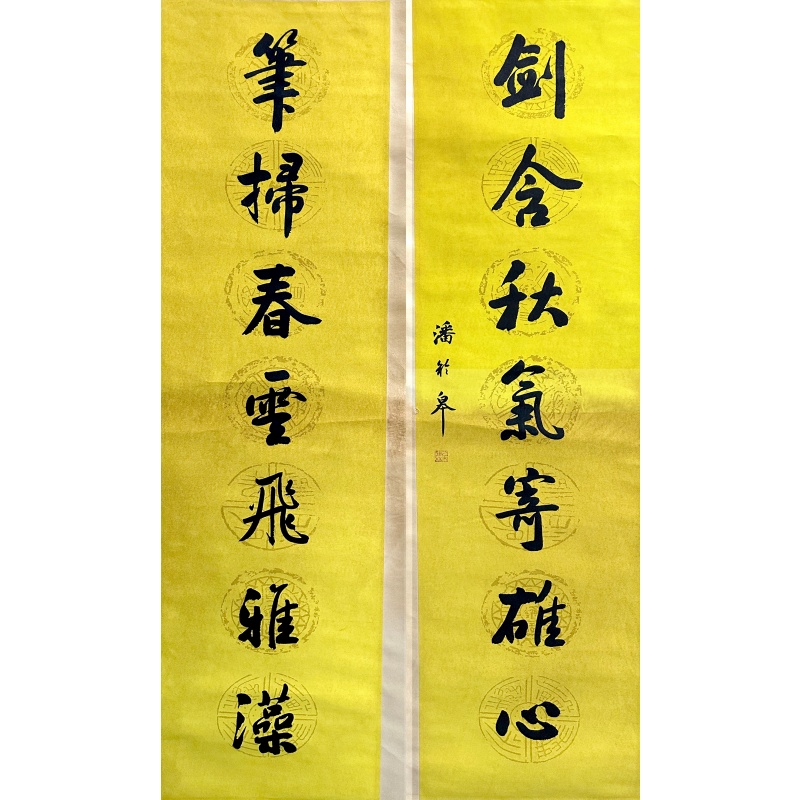 劍含秋氣寄雄心
潘齡皋
筆掃春雲飛雅藻